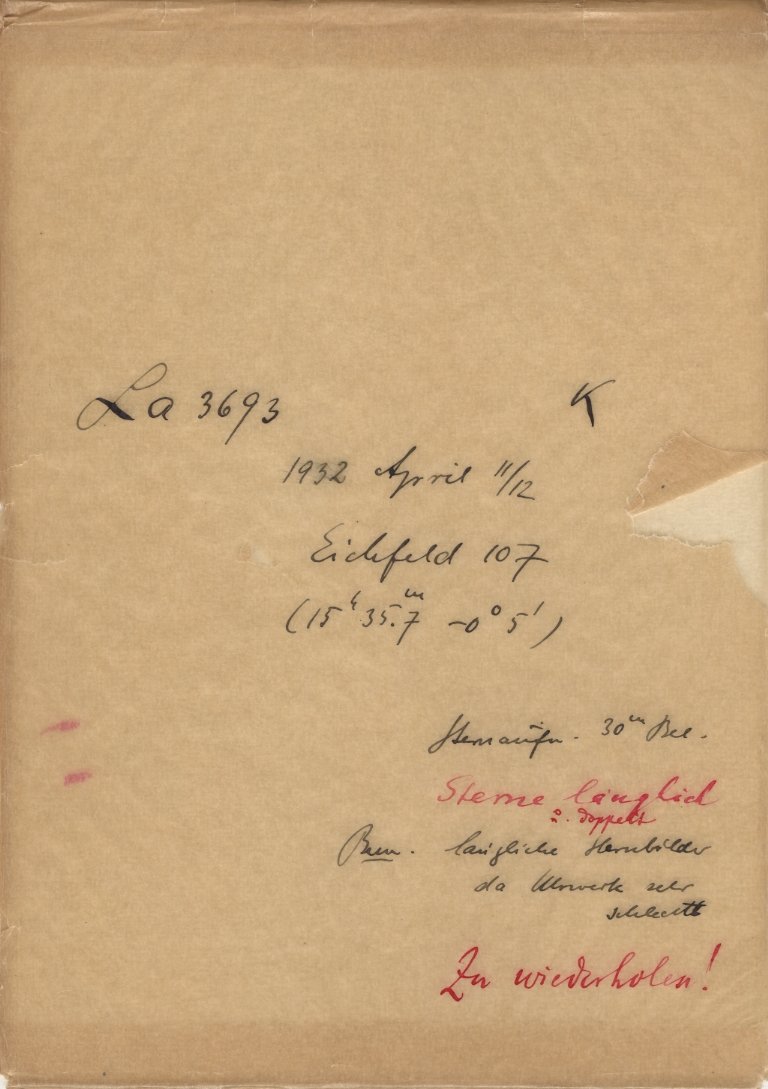 La 3693 K
1932 April 11/12
Eichfeld 107
(15ʰ 35.ᵐ7 -0° 5')
Sternaufn. 30ᵐ Bel.
Sterne länglich
u. doppelt
Bem. längliche Sternbilder
da Uhrwerk sehr
schlecht
Zu wiederholen!